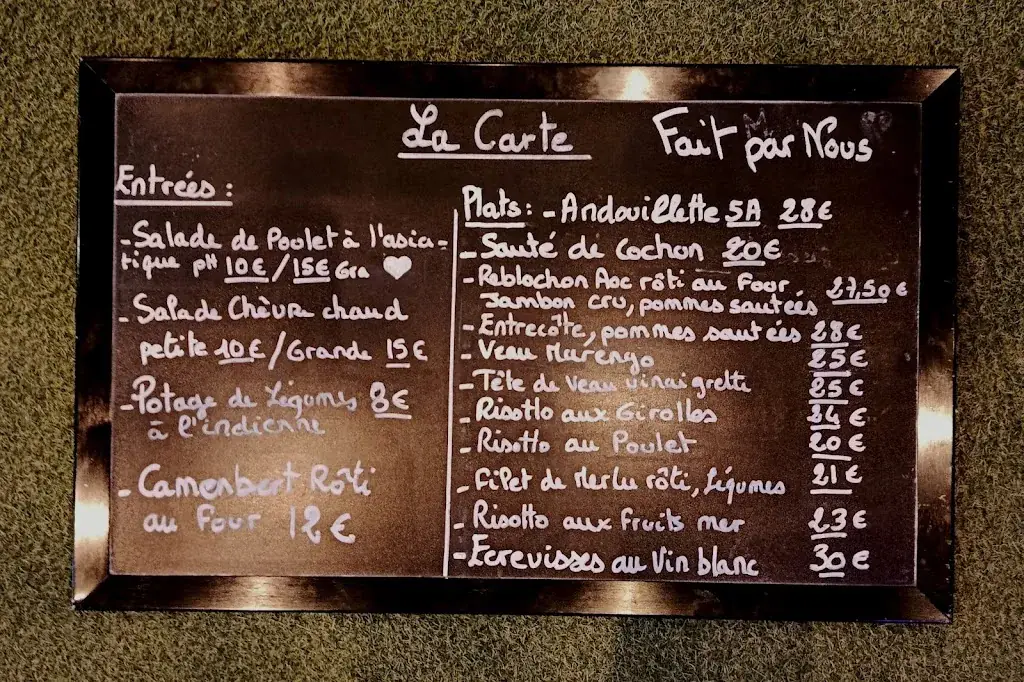 La Carte
Fait par Nous
Entrées :
- Salade de Poulet à l'asia-
tique pH 10€/15€ Gra
- Salade Chèvre chaud
petite 10€/Grande 15€
- Potage de Légumes 8€
à l'indienne
- Camembert Rôti
au Four 12€
Plats : - Andouillette 5A 28€
- Sauté de Cochon 20€
- Reblochon Aoc rôti au Four 27,50€
Jambon cru, pommes sautées
- Entrecôte, pommes sautées 28€
- Veau Marengo 25€
- Tête de veau vinaigrette 25€
- Risotto aux Girolles 24€
- Risotto au Poulet 20€
- Filet de Merlu rôti, Légumes 21€
- Risotto aux Fruits mer 23€
- Ecrevisses au Vin blanc 30€